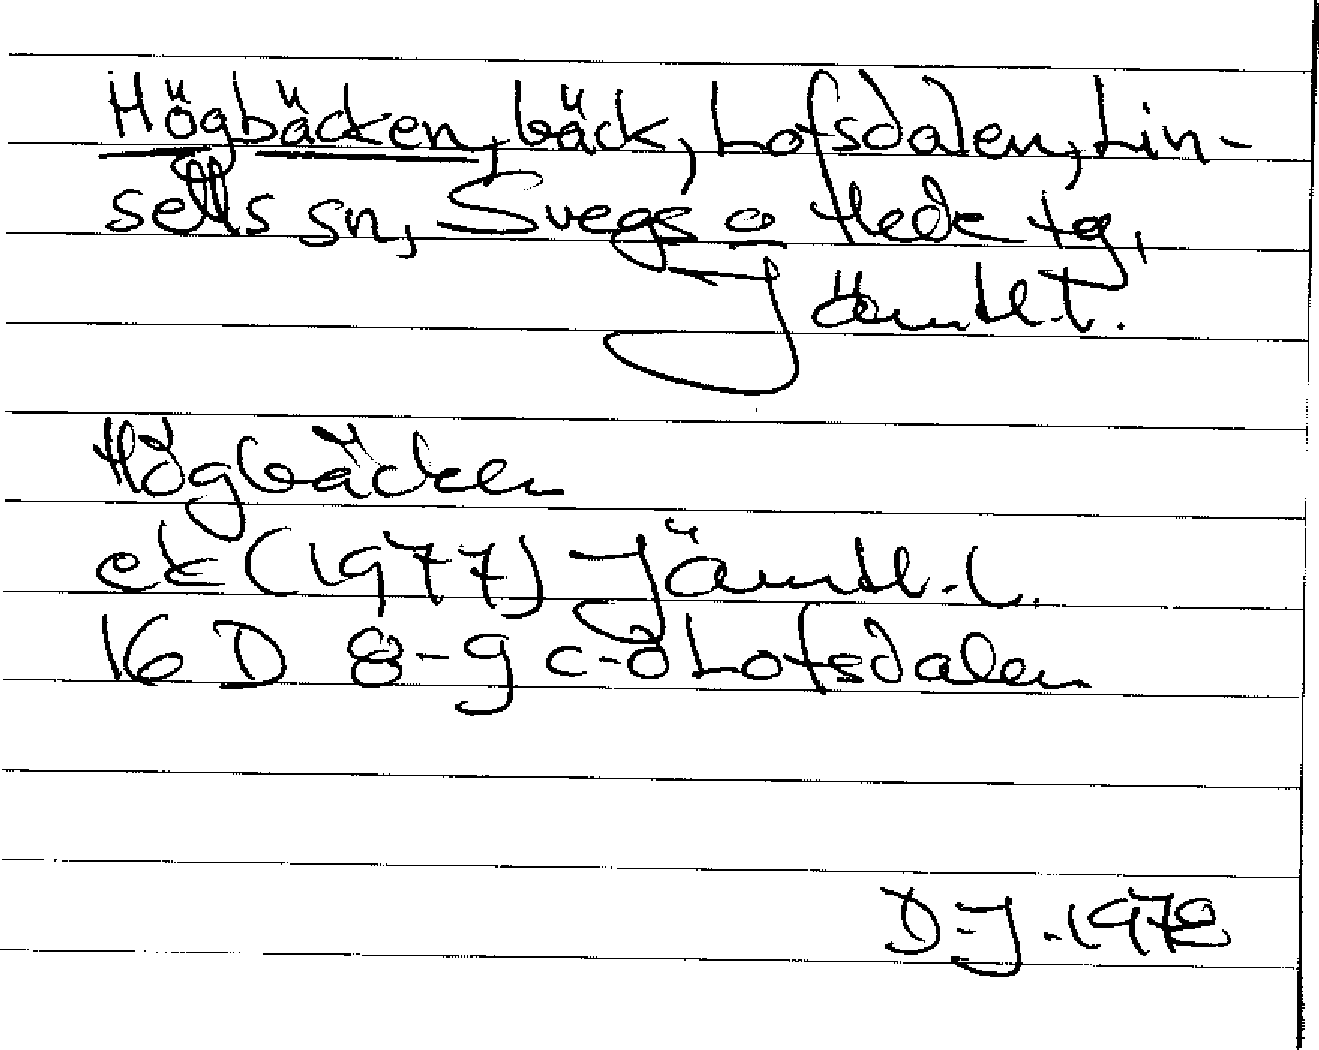 Högbäcken, bäck, Lofsdalen, Lin-
sells sn, Svegs o Hede tg,
Jämtl.l.
Högbäcken
ek (1977) Jämtl.l.
16 D 8-9 c-d Lofsdalen
D-J. 1978